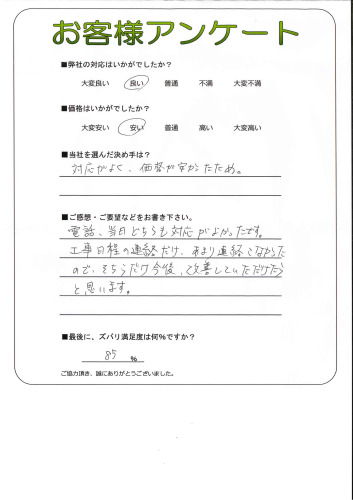 お客様アンケート
■弊社の対応はいかがでしたか？
大変良い 良い 普通 不満 大変不満
■価格はいかがでしたか？
大変安い 安い 普通 高い 大変高い
■当社を選んだ決め手は？
対応がよく、価格が安かったため。
■ご感想・ご要望などをお書き下さい。
電話、当日どちらも対応がよかったです。
工事日程の連絡だけ、あまり連絡こなかった
ので、そちらだけ今後、改善していただけたら
と思います。
■最後に、ズバリ満足度は何％ですか？
85 ％
ご協力頂き、誠にありがとうございました。